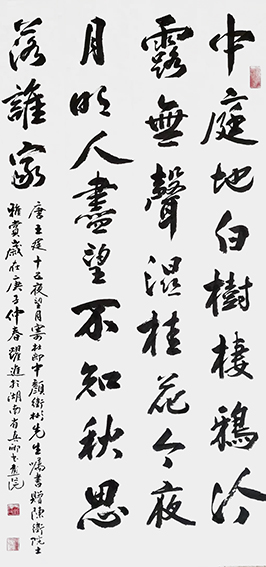 中庭地白樹棲鴉冷
露無聲濕桂花今夜
月明人盡望不知秋思
落誰家
唐王建十五夜望月寄杜郎中顏衛彬先生囑書贈陳衛院士
雅賞歲在庚子仲春躍進於湖南省書畫院